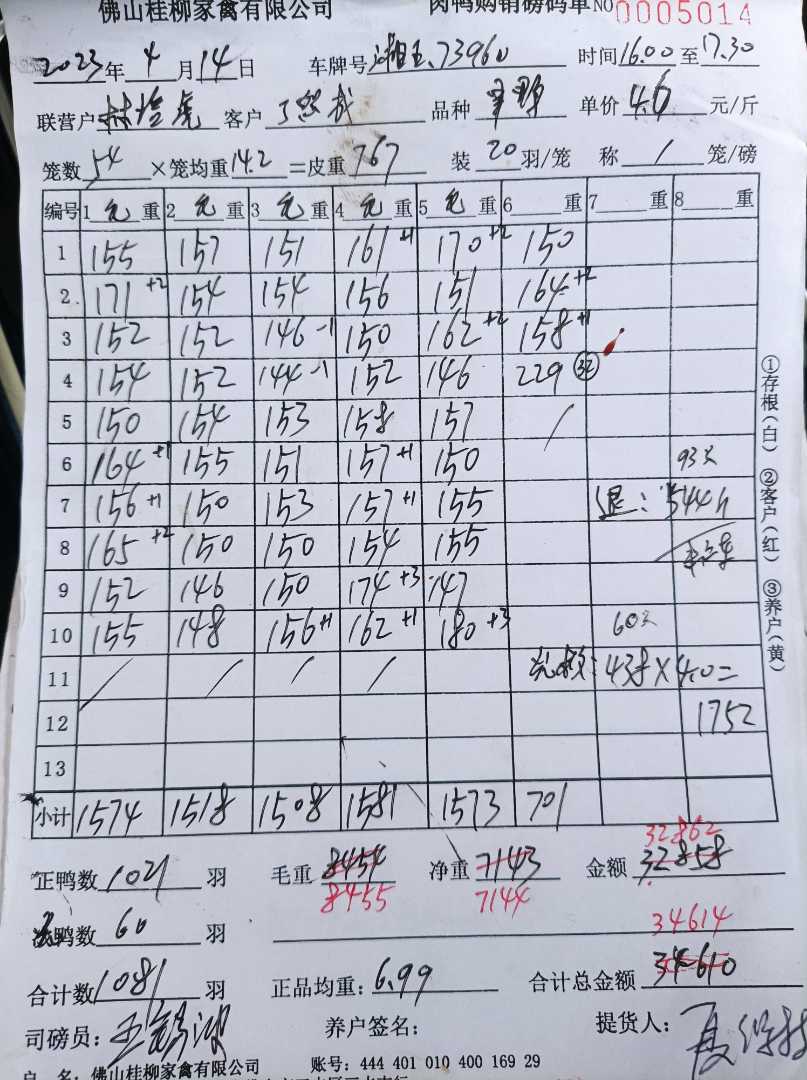 佛山桂柳家禽有限公司 肉鸭购销磅码单 NO 0005014
2023年 4 月 14 日 车牌号 湘E.73960 时间 16.00 至 17.30
联营户 客户 品种 单价 4.6 元/斤
笼数 54 ×笼均重 14.2 =皮重 767 装 20 羽/笼 称 1 笼/磅
编号 1 毛 重 2 毛 重 3 毛 重 4 毛 重 5 毛 重 6 重 7 重 8 重
1 155 157 151 161+1 170+2 150
2 171+2 154 154 156 151 164+2
3 152 152 146-1 150 162+2 158+1
4 154 152 144-1 152 146 229 32
5 150 154 153 158 157 /
6 164+1 155 151 157+1 150 93只
7 156+1 150 153 157+1 155 退: 544斤
8 165+2 150 150 154 155
9 152 146 150 174+3 147
10 155 148 156+1 162+1 180+3 60只
11 / / / / 438×4.0=
12 1752
13
小计 1574 1518 1508 1581 1573 701
32862
正鸭数 1021 羽 毛重 8454 净重 7143 金额 32858
8455 7144
鸭数 60 羽 34614
合计数 1081 羽 正品均重: 6.99 合计总金额 34610
司磅员: 养户签名: 提货人:
户 名: 佛山桂柳家禽有限公司 账号: 444 401 010 400 169 29
①存根(白) ②客户(红) ③养户(黄)